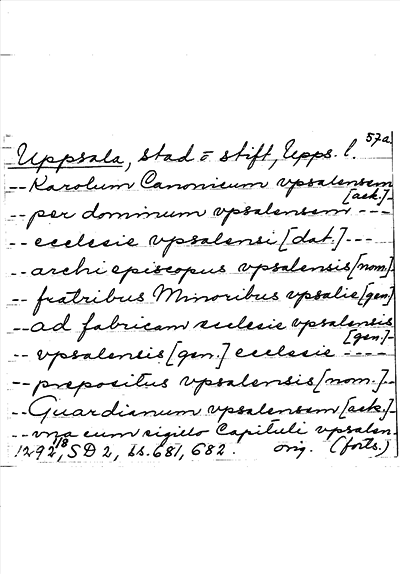 57a
Uppsala, stad o stift, Upps. l.
-- Karolum Canonicum vpsalensem
[ack.]-
-- per dominum vpsalensem ---
-- ecclesie vpsalensi [dat.] ---
-- archiepiscopus vpsalensis [nom.]
-- fratribus Minoribus vpsalie [gen.]
-- ad fabricam ecclesie vpsalensis
[gen.]-
-- vpsalensis [gen.] ecclesie ----
-- prepositus vpsalensis [nom.]--
-- Guardianum vpsalensem [ack.]-
-- vna cum sigillo Capituli vpsalen-
1292 1/8, SD 2, ss. 681, 682. orig. (forts.)